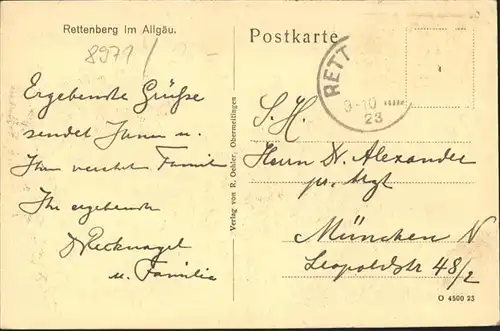 Rettenberg im Allgäu.
8971/
Postkarte
RETT
9-10
23
Ergebenste Grüße
sendet Ihnen u.
Ihrer verehrten Familie
Ihr ergebenster
Recknagel
u. Familie
Verlag von R. Oehler, Obermeitingen
S. H.
Herrn Dr. Alexander
pr. Arzt
München N
Leopoldstr 48/2
O 4500 23